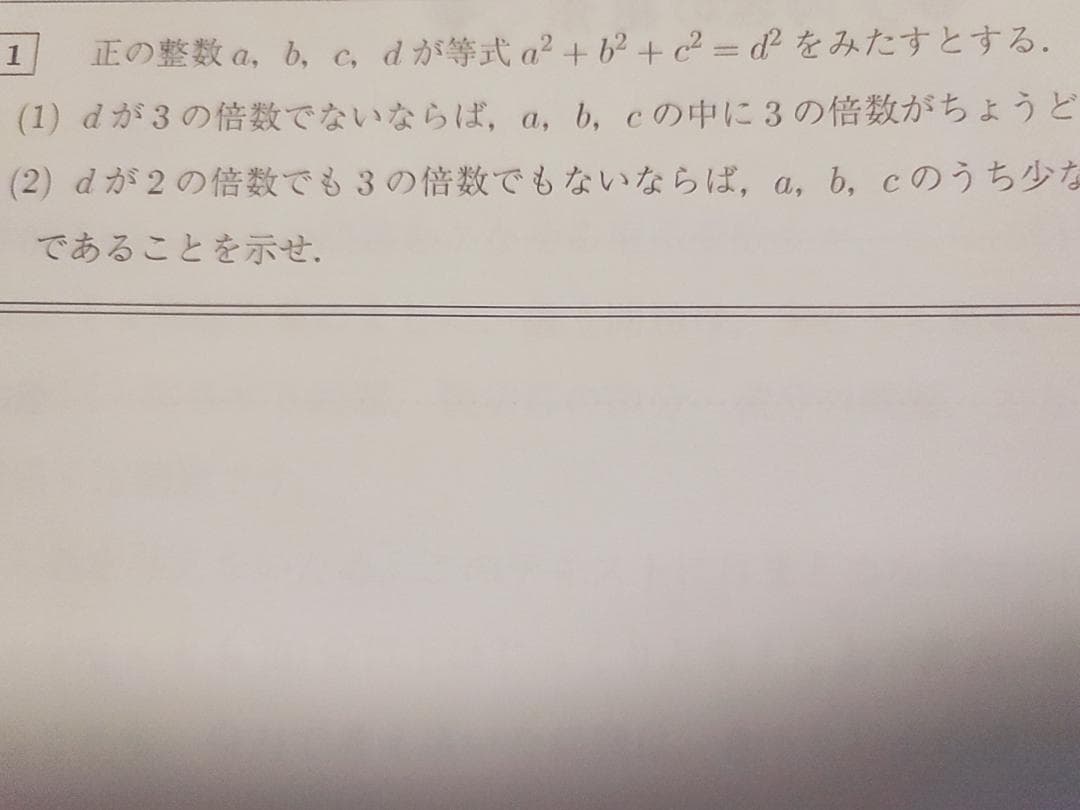 1 正の整数 a, b, c, d が等式 a² + b² + c² = d² をみたすとする.
(1) d が 3 の倍数でないならば, a, b, c の中に 3 の倍数がちょうど
(2) d が 2 の倍数でも 3 の倍数でもないならば, a, b, c のうち少な
であることを示せ.